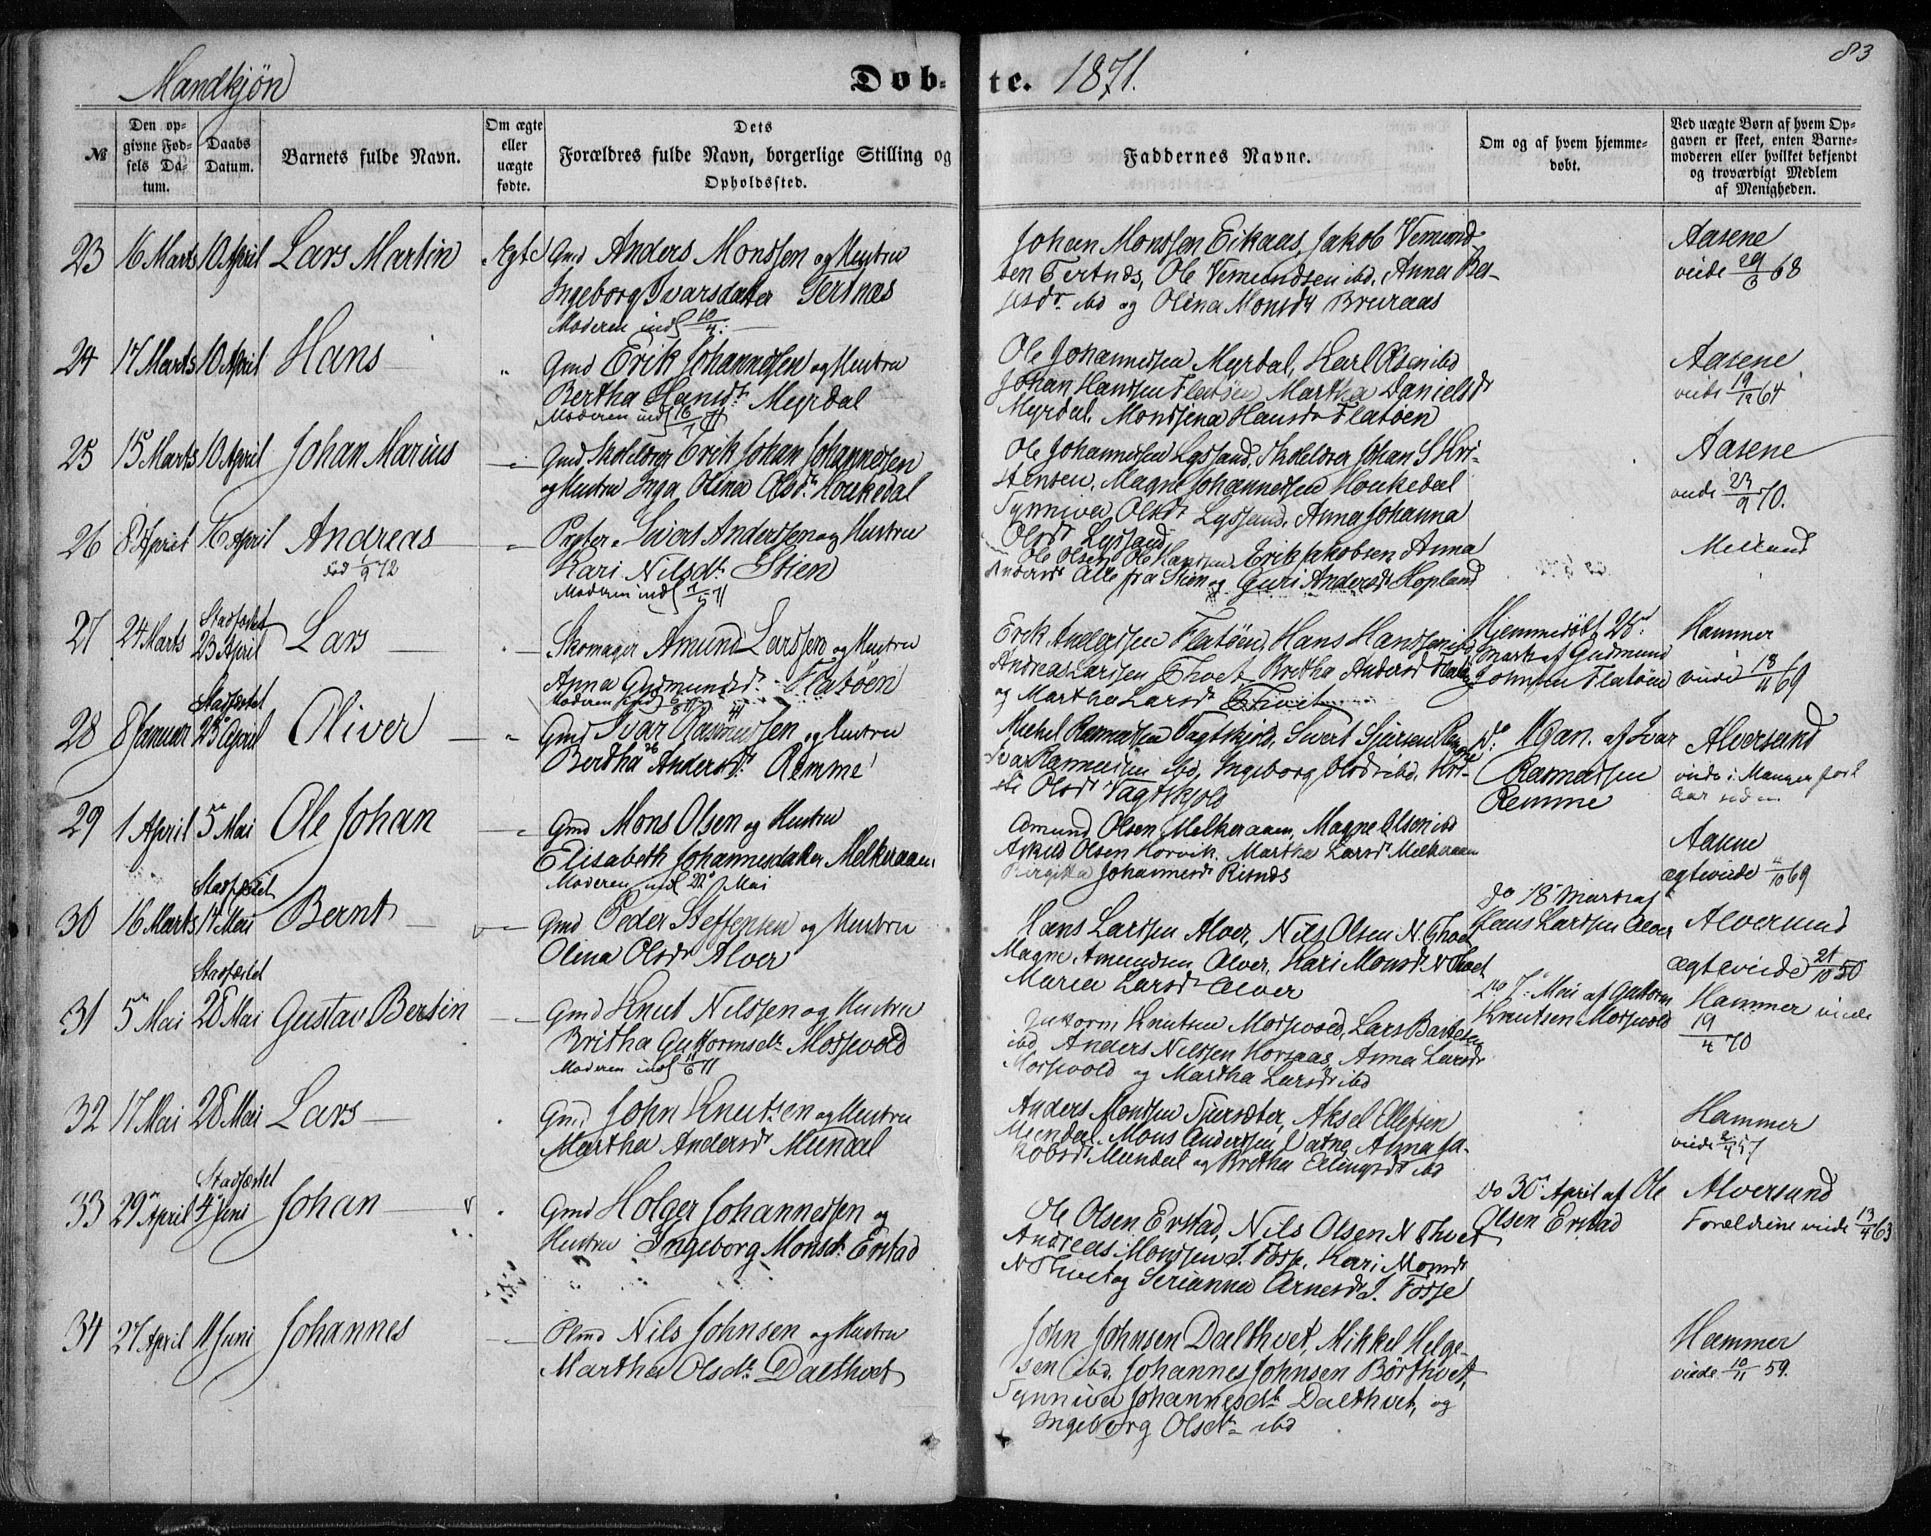 Mandkjøn
Døb-
te. 1871.
83
№
Den op-
givne Fød-
sels Da-
tum.
Daabs
Datum.
Barnets fulde Navn.
Om ægte
eller
uægte
fødte.
Dets
Forældres fulde Navn, borgerlige Stilling og
Opholdssted.
Faddernes Navne.
Om og af hvem hjemme-
døbt.
Ved uægte Børn af hvem Op-
gaven er skeet, enten Barne-
moderen eller hvilket bekjendt
og troværdigt Medlem
af Menigheden.
23 16 Marts 10 April Lars Martin Ægte Gmd Anders Monssen og Hustru
Ingeborg Ivarsdatter Tertnæs
Moderen indl 10/4
Johan Monssen Eikaas, Jakob Vemund
sen Tertnæs, Ole Vemundsen ibd. Anna Ber-
dr ibd og Olina Monsdr Bruraas
Aasene
viede 29/6 68
24 17 Marts 10 April Hans " Gmd Erik Johannessen og Hustru
Bertha Hansdr Myrdal
Moderen indl
Ole Johannessen Myrdal, Karl Olsen ibd
Johan Hanssen Flatøen, Martha Danielsdr
Myrdal, Monsina Hansdr Flatøen
Aasene
viede 19/12 64
25 15 Marts 10 April Johan Marius " Gmd. Skolelærer Erik Johan Johannessen
og Hustru Inga Olina Olsdr Haukedal
Ole Johannessen Lyssand, Skolelærer Johan S Kri-
stensen, Magne Johannessen Haukedal
Synniva Olsdr Lyssand, Anna Johanna
Olsdr Lyssand
Aasene
viede 23/9 70.
26 8 April 16 April Andreas
død 1/9 72
" Pagter Sivert Anderssen og Hustru
Kari Nilsdr Stien
Moderen indl 7/5 71
Ole Olsen, Ole Hanssen, Erik Jakobsen, Anna
Andersdr Alle fra Stien og Guri Andersdr Hopland
Melland
27 24 Marts Stadfæstet
23 April Lars " Skomager Amund Larssen og Hustru
Anna Gudmundsdr Flatøen
Erik Anderssen Flatøen, Hans Hanssen ibd
Andreas Larssen Thvet, Bretha Andersd Flatøen
og Martha Larsdr Thvet
Hjemmedøbt 25
Marts af Gudmund
Johnsen Flatøen
Hammer
viede 18/11 69
28 8 Januar Stadfæstet
23 April Oliver " Gmd Ivar Rasmussen og Hustru
Bertha Andersdr Remme
Michel Rasmussen Vagtskjold, Sivert Sjursen Remme
Ivar Rasmussen ibd, Ingeborg Olsdr ibd. Kri-
sti Olsdr Vagtskjold
do 11 Jan. af Ivar
Rasmussen
Remme
Alversund
viede i Manger for 1
Aar siden
29 1 April 5 Mai Ole Johan " Gmd Mons Olsen og Hustru
Elisabeth Johannesdatter Melkeraaen
Moderen indl 21 Mai
Amund Olsen Melkeraaen, Magne Olsen ibd
Askild Olsen Horvik, Martha Larsdr Melkeraaen
Birgitta Johannesdr Risnes
Aasene
ægteviede 4/10 69
30 16 Marts Stadfæstet
17 Mai Bernt " Gmd Peder Steffensen og Hustru
Olina Olsdr Alver
Hans Larssen Alver, Nils Olsen N. Thvet
Magne Amundsen Alver, Kari Monsdr N Thvet
Maria Larsdr Alver
do 18 Marts af
Hans Larssen Alver
Alversund
ægteviede 21/10 50
31 5 Mai Stadfæstet
28 Mai Gustav Bertin " Gmd Knut Nilssen og Hustru
Britha Guttormsdr Morsvold
Moderen indl 11/6 71
Guttorm Knutsen Morsvold, Lars Bastesen
ibd Anders Nilssen Horsaas, Anna Larsdr
Morsvold og Martha Larsdr ibd
do 7 Mai af Guttorm
Knutsen Morsvold
Hammer viede
19/4 70
32 17 Mai 28 Mai Lars " Gmd John Knutsen og Hustru
Martha Andersdr Mundal
Anders Monssen Sjursæter, Aksel Ellefsen
Mundal, Mons Anderssen Vatne, Anna Ja-
kobsdr Mundal og Bretha Erlingsdr ibd
Hammer
viede
33 29 April Stadfæstet
4 Juni Johan " Gmd Holger Johannessen og
Hustru Ingeborg Monsdr Erstad
Ole Olsen Erstad, Nils Olsen N Thvet
Andreas Monssen I. Fosse, Kari Monsdr
N Thvet og Serianna Arnesdr I. Fosse
do 30 April af Ole
Olsen Erstad
Alversund
Forældrene viede 13/4 63
34 27 April 11 Juni Johannes " Plmd Nils Johnsen og Hustru
Martha Olsdr Dalthvet
John Johnsen Dalthvet, Mikkel Helge-
sen ibd. Johannes Johnsen Børthvet,
Synniva Johannesdr Dalthvet, og
Ingeborg Olsdr ibd
Hammer
viede 10/11 59.